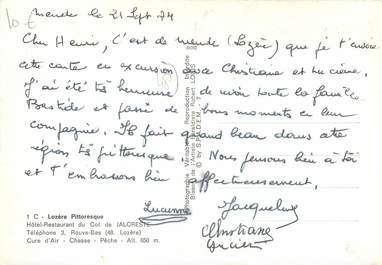 10 €
Mende le 21 Sept 74
Cher Henri, C'est de mende (Lozère) que je t'envoie
cette carte en excursion avec Christiane et Lucienne.
J'ai été très heureuse de voir toute la famille
Bastide et passé de bons moments en leur
compagnie. Il fait quand beau dans cette
région très pittoresque. Nous pensons bien à toi
et t'embrassons bien affectueusement.
Lucienne Jacqueline
Christiane
1 C - Lozère Pittoresque
Hôtel-Restaurant du Col de JALCRESTE
Téléphone 3, Rouve-Bas (48. Lozère)
Cure d'Air - Chasse - Pêche - Alt. 650 m.
Reproduction
© by S.P.A.D.E.M.